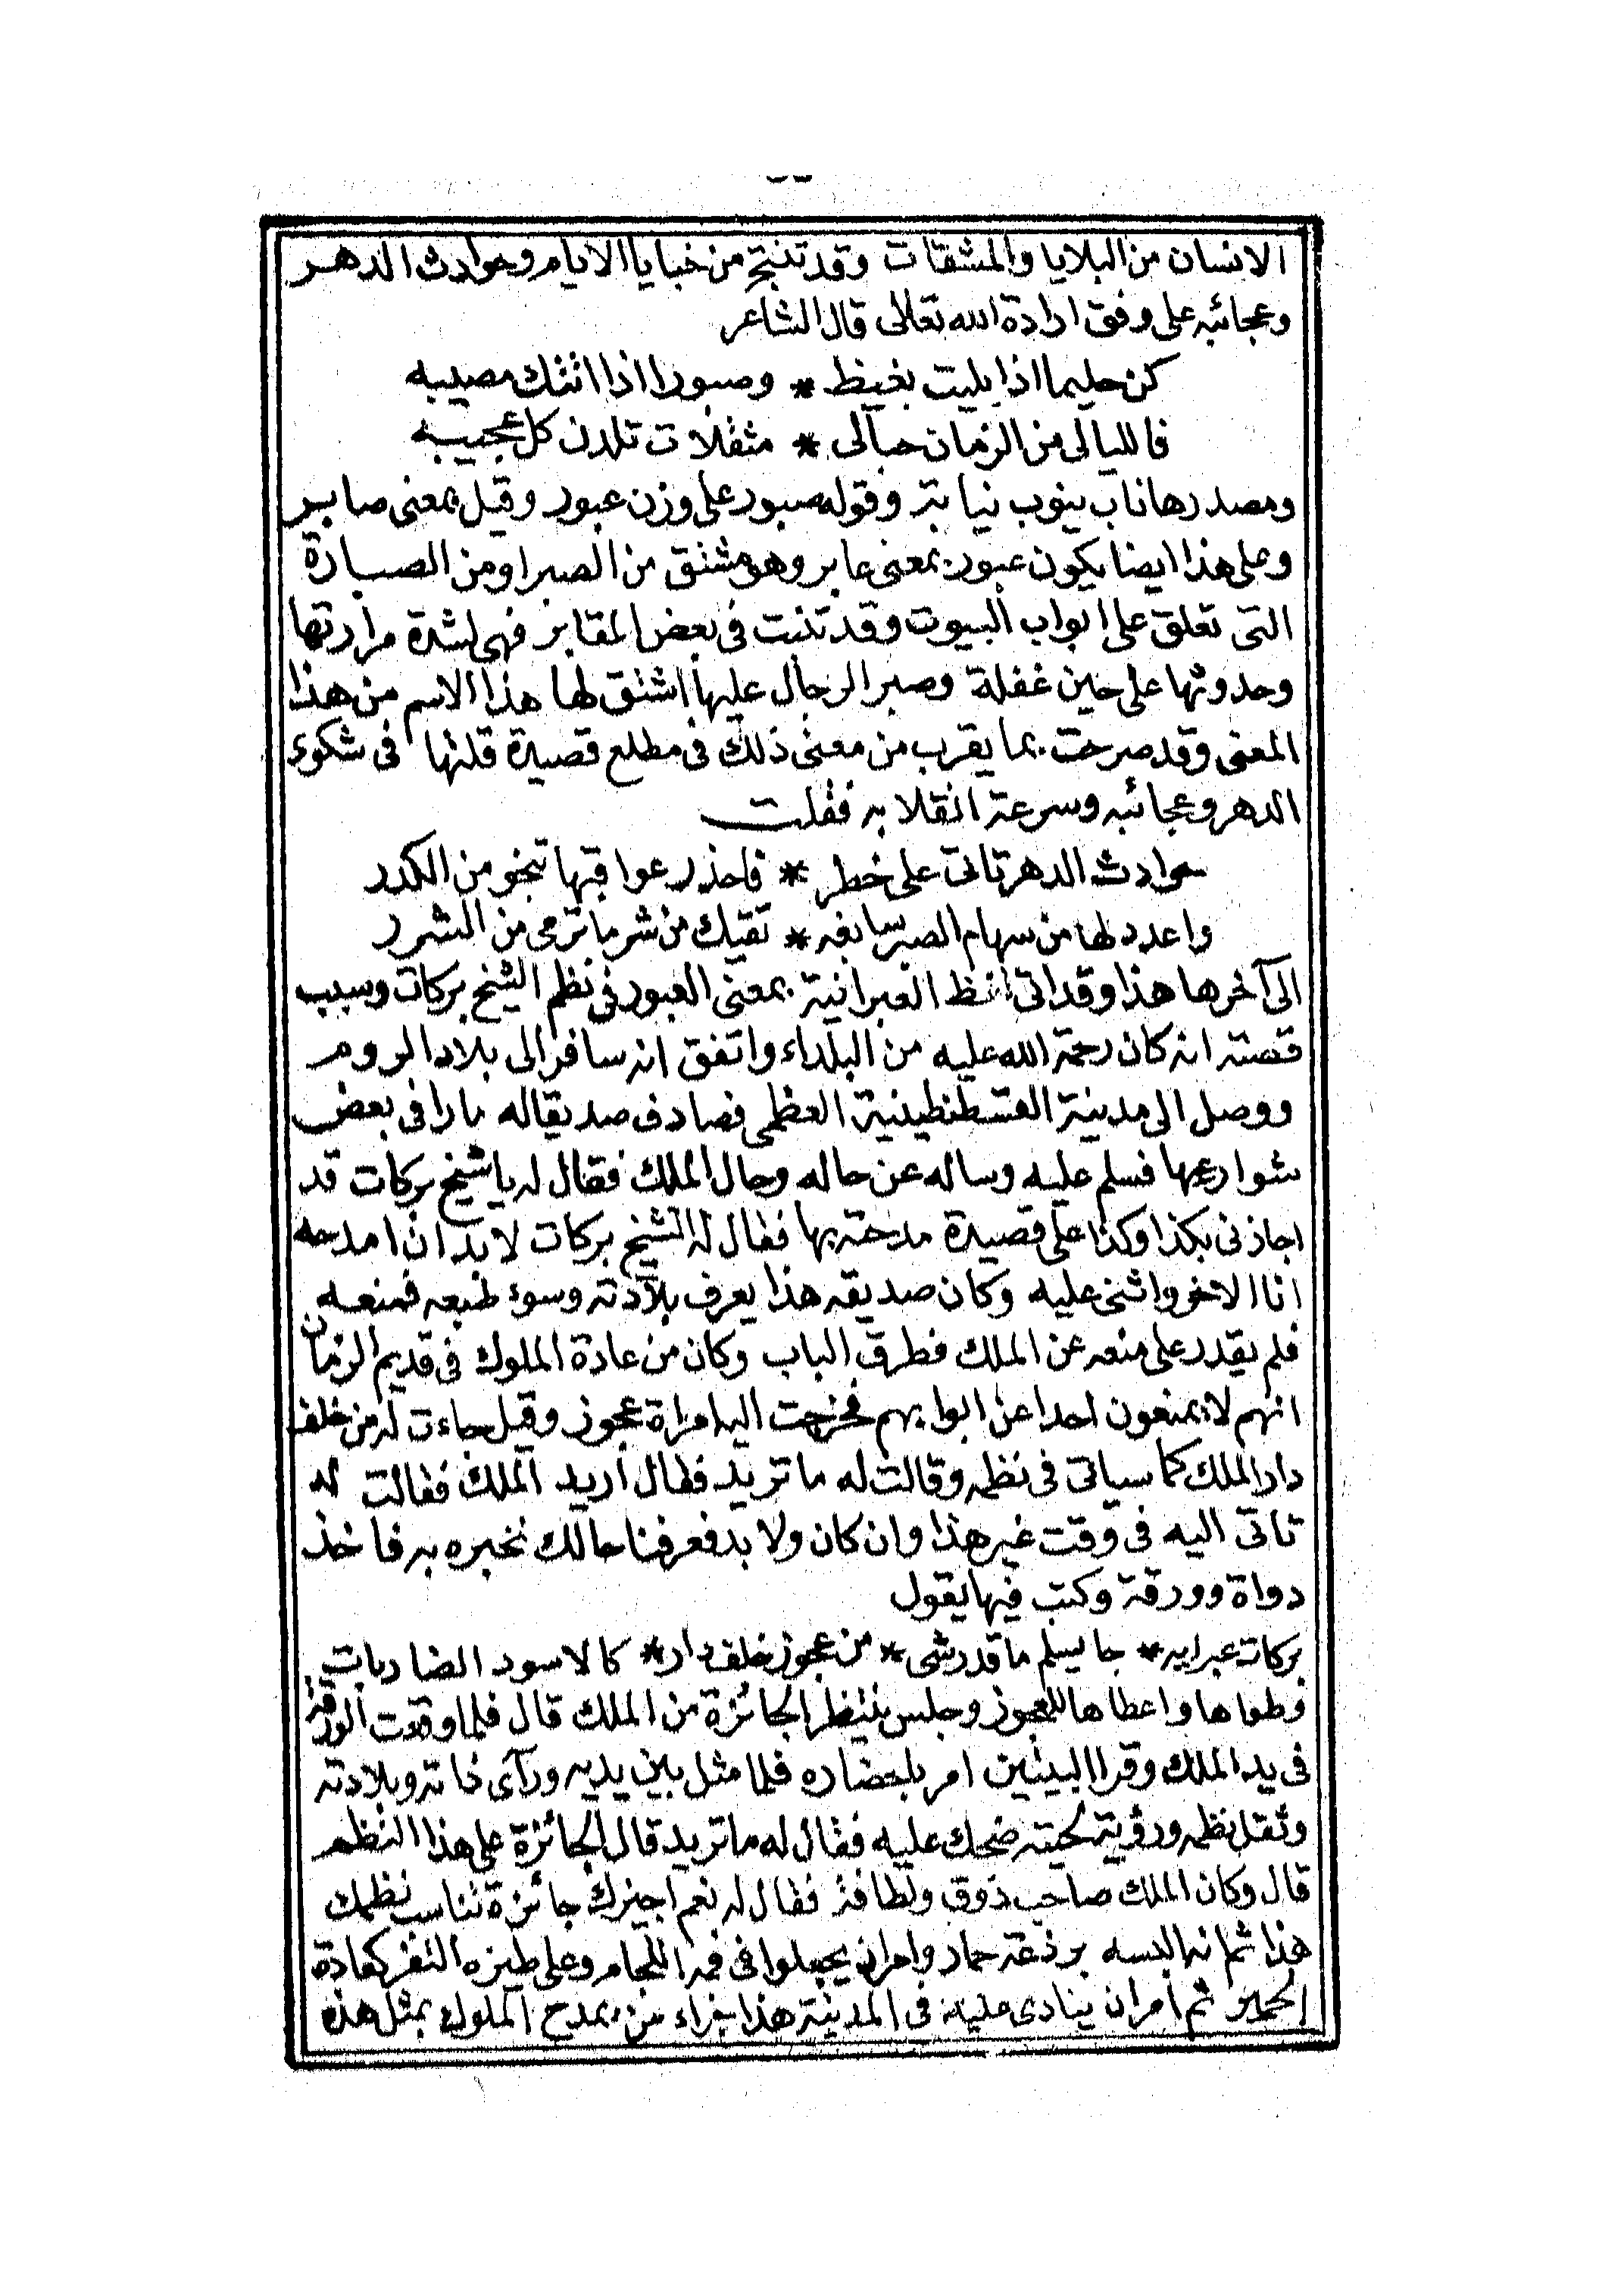 الانسان من البلايا والمشقات وقد تنتج من خبايا الايام وحوادث الدهر
وعجائبه على وفق ارادة الله تعالى قال الشاعر
كن حليما اذا بليت بغيظ * وصبورا اذا اتتك مصيبه
فالليالى من الزمان حبالى * مثقلات تلدن كل عجيبه
ومصدرها ناب ينوب نيابة وقوله صبور على وزن عبور وقيل بمعنى صابر
وعلى هذا ايضا يكون عبور بمعنى عابر وهو مشتق من الصبر او من الصبارة
التى تعلق على ابواب البيوت وقد تنبت فى بعض المقابر فهى لشدة مرارتها
وحدوثها على حين غفلة وصبر الرجال عليها اشتق لها هذا الاسم من هذا
المعنى وقد صرحت بما يقرب من معنى ذلك فى مطلع قصيدة قلتها فى شكوى
الدهر وعجائبه وسرعة انقلابه فقلت
حوادث الدهر تاتى على خطر * فاحذر عواقبها تنجو من الكدر
واعدد لها من سهام الصبر سابغه * تقيك من شر ما ترمى من الشرر
الى آخرها هذا وقد اتى لفظ العبرانية بمعنى العبور فى نظم الشيخ بركات وسبب
قصته انه كان رحمة الله عليه من البلداء واتفق انه سافر الى بلاد الروم
ووصل الى مدينة القسطنطينية العظمى فصادف صديقا له مارا فى بعض
شوارعها فسلم عليه وساله عن حاله وحال الملك فقال له يا شيخ بركات قد
اجازنى بكذا وكذا على قصيدة مدحته بها فقال له الشيخ بركات لا بد ان امدحه
انا الاخر واثنى عليه وكان صديقه هذا يعرف بلادته وسوء طبعه فمنعه
فلم يقدر على منعه عن الملك فطرق الباب وكان من عادة الملوك فى قديم الزمان
انهم لا يمنعون احدا عن ابوابهم فخرجت اليه امراة عجوز وقيل جاءت له من خلف
دار الملك كما سياتى فى نظمه وقالت له ما تريد فقال اريد الملك فقالت له
تاتى اليه فى وقت غير هذا وان كان ولا بد فعرفنا حالك نخبره به فاخذ
دواة وورقة وكتب فيها يقول
بركات عبرايه * جا يسلم ما قدرشى * من عجوز خلف دار * كالاسود الضاربات
فطواها واعطاها للعجوز وجلس ينتظر الجائزة من الملك قال فلما وقعت الورقة
فى يد الملك وقرا البيتين امر باحضاره فلما مثل بين يديه ورآى ذاته وبلادته
وثقل نظمه ورؤية لحيته ضحك عليه فقال له ما تريد قال الجائزة على هذا النظم
قال وكان الملك صاحب ذوق ولطافة فقال له نعم اجيزك جائزة تناسب نظمك
هذا ثم انه البسه برذعة حمار وامر ان يجعلوا فى فمه اللجام وعلى طيزه الثفر كعادة
الحمير ثم امر ان ينادى عليه فى المدينة هذا جزاء من يمدح الملوك بمثل هذه